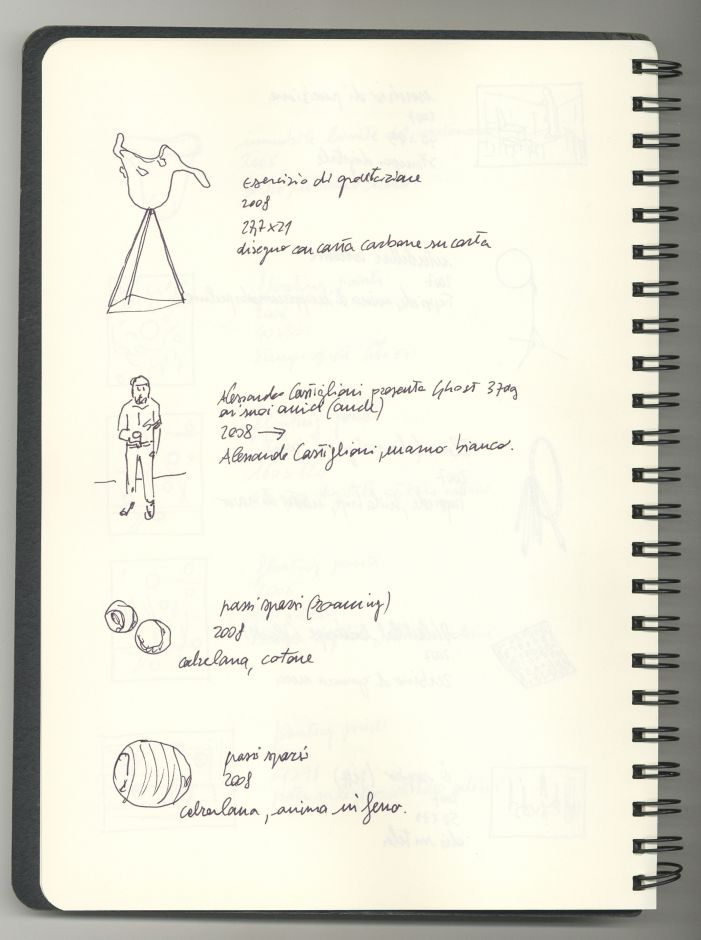 esercizio di gravitazione
2008
27,7x21
disegno con carta carbone su carta
Alessandro Castiglioni presenta Ghost 370g
ai suoi amici (anch)
2008 →
Alessandro Castiglioni, marmo bianco.
passi spazi (roaming)
2008
calzelana, cotone
passi spazi
2008
calzelana, anima in ferro.